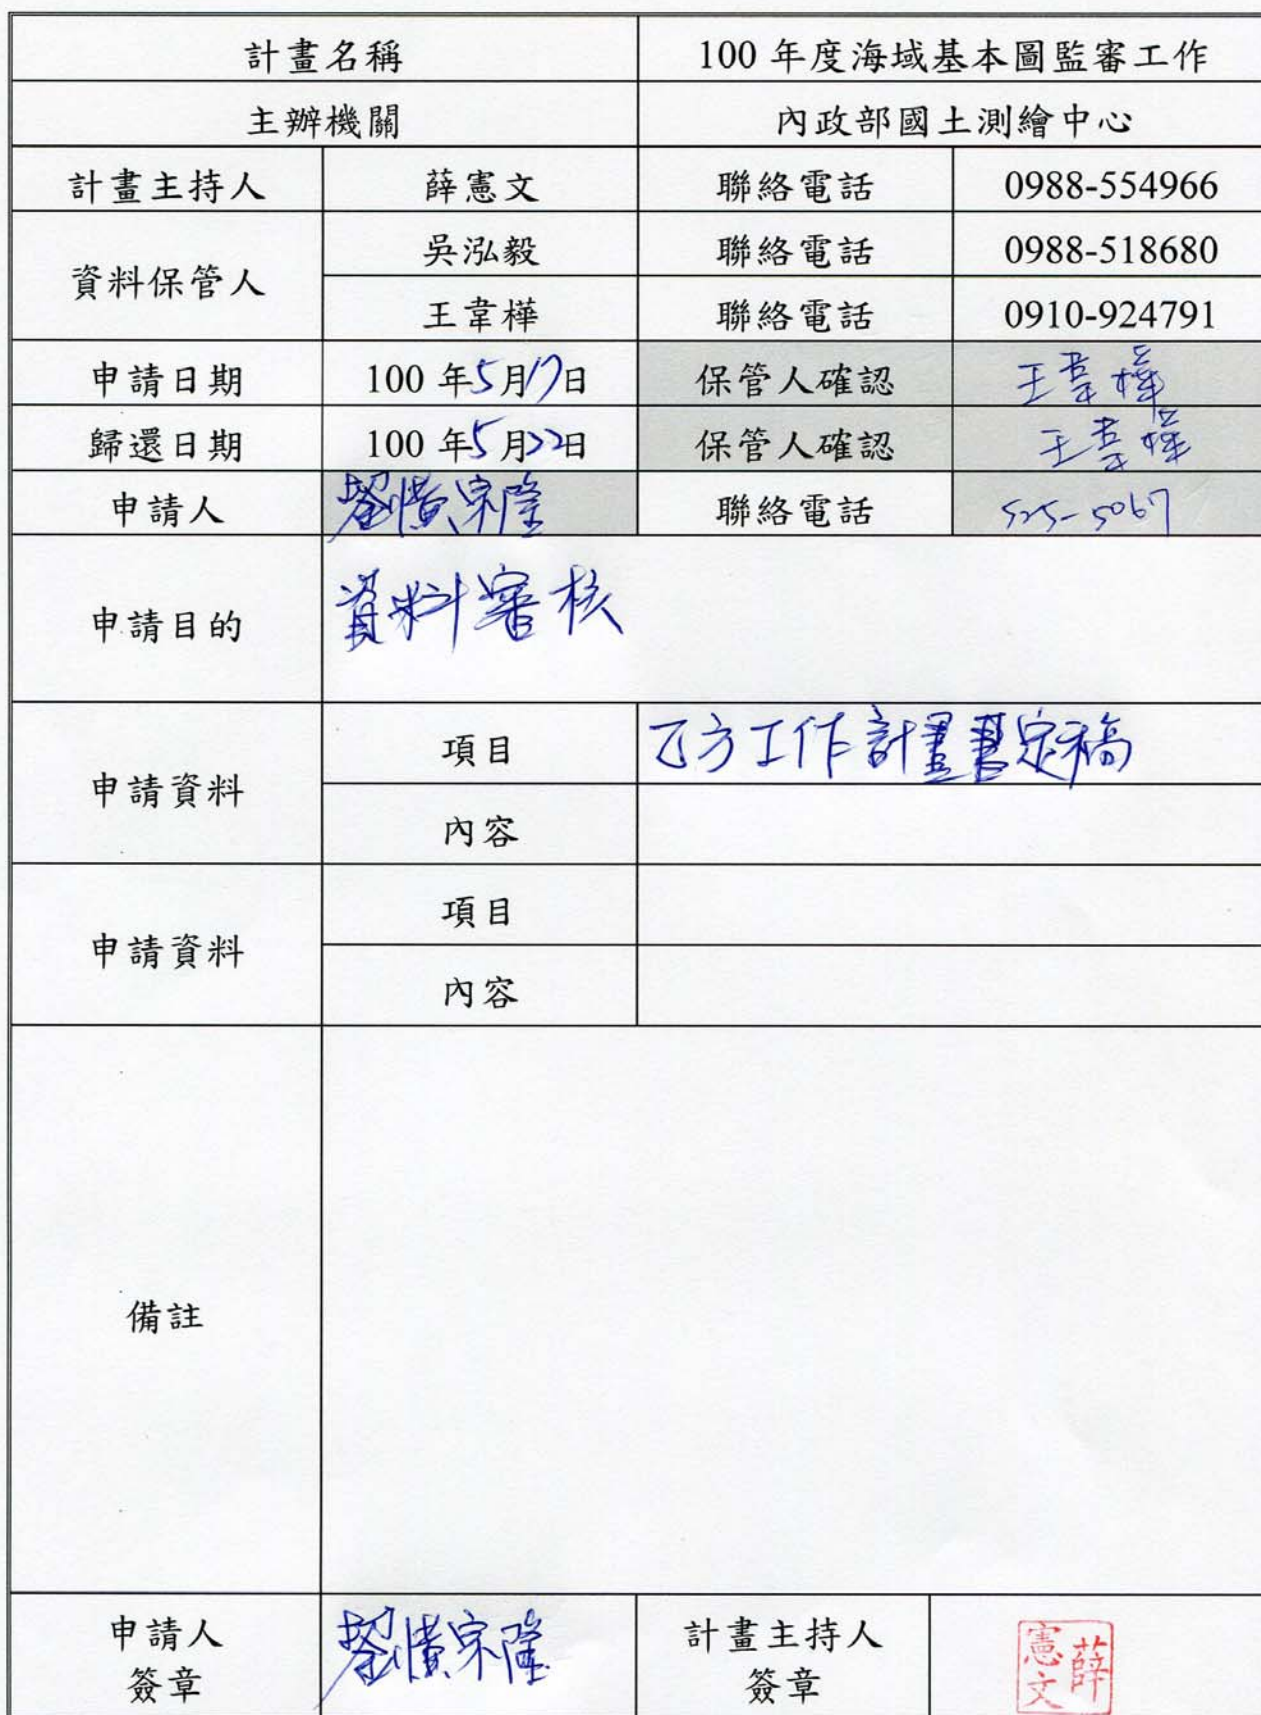 計畫名稱 100 年度海域基本圖監審工作
主辦機關 內政部國土測繪中心
計畫主持人 薛憲文 聯絡電話 0988-554966
資料保管人
吳泓毅 聯絡電話 0988-518680
王韋樺 聯絡電話 0910-924791
申請日期 100 年5月17日 保管人確認 王韋樺
歸還日期 100 年5月22日 保管人確認 王韋樺
申請人 宗隆 聯絡電話 525-5067
申請目的 資料審核
申請資料
項目 乙方工作計畫書定稿
內容
申請資料
項目
內容
備註
申請人
簽章
宗隆
計畫主持人
簽章
薛
憲文